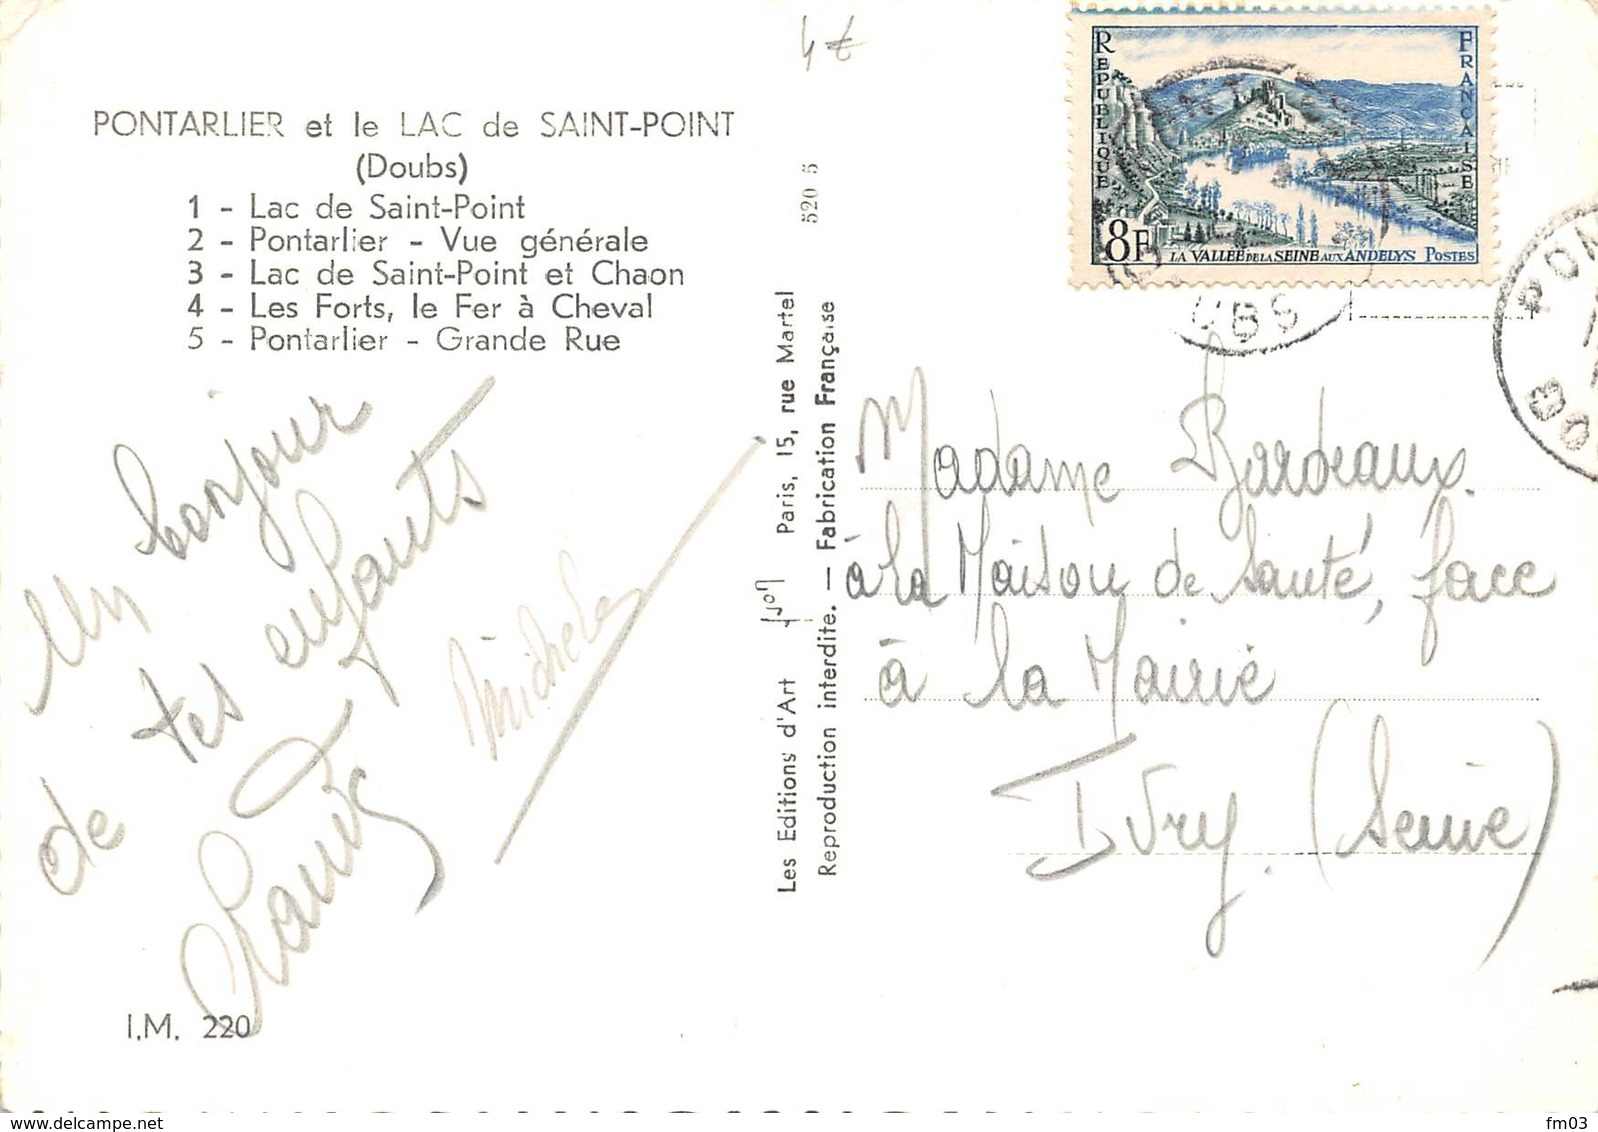 4€
PONTARLIER et le LAC de SAINT-POINT
(Doubs)
1 - Lac de Saint-Point
2 - Pontarlier - Vue générale
3 - Lac de Saint-Point et Chaon
4 - Les Forts, le Fer à Cheval
5 - Pontarlier - Grande Rue
Un bonjour
de tes enfants
Michel
I.M. 220
520 5
Les Editions d'Art
Paris, 15, rue Martel
Reproduction interdite. — Fabrication Française
REPUBLIQUE
FRANCAISE
8F
LA VALLÉE DE LA SEINE AUX ANDELYS POSTES
UBS
PON
DOU
Madame Bordeaux.
à la Maison de Santé, face
à la Mairie
Ivry. (Seine)
delcampe.net
fm03